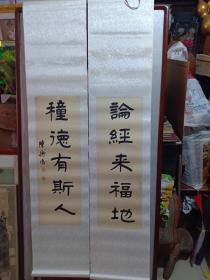 論經來福地
種德有斯人